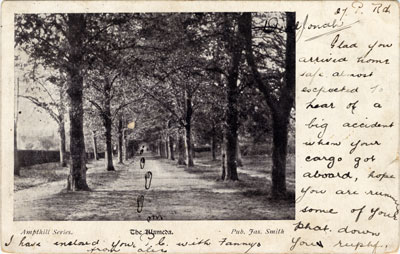 27 P. Rd
Monday
Glad you
arrived home
safe almost
expected to
hear of a
big accident
when your
cargo got
aboard, hope
you are
some of your
down
Ampthill Series.
The Alameda.
Pub. Jas. Smith
I have your with Fanny's
from